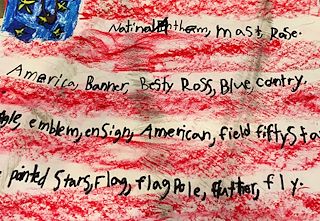 National Anthem, mast, Rose.
America, Banner, Besty Ross, Blue, contry.
gle, emblem, ensign, American, field fifty Sta
pointed Stars, Flag, flag Pole, flutter, fly.